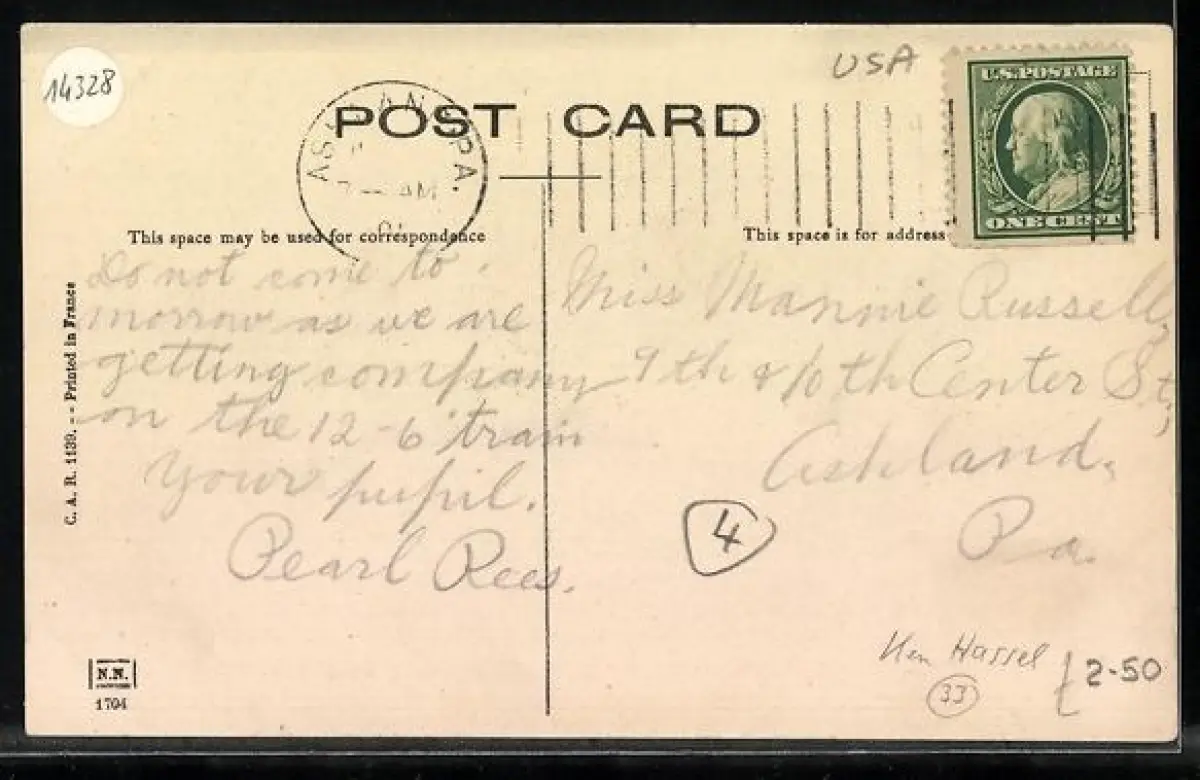 14328
USA
U.S. POSTAGE
ONE CENT
PA.
AM
POST CARD
This space may be used for correspondence
This space is for address
Do not come to
morrow as we are
getting company
on the 12-6 train
Your pupil.
Pearl Rees.
Miss Mannie Russell,
9th & 10th Center St,
Ashland,
Pa.
4
C. A. R. 1139. -- Printed in France
N.N.
1704
Hassel
33
£ 2-50